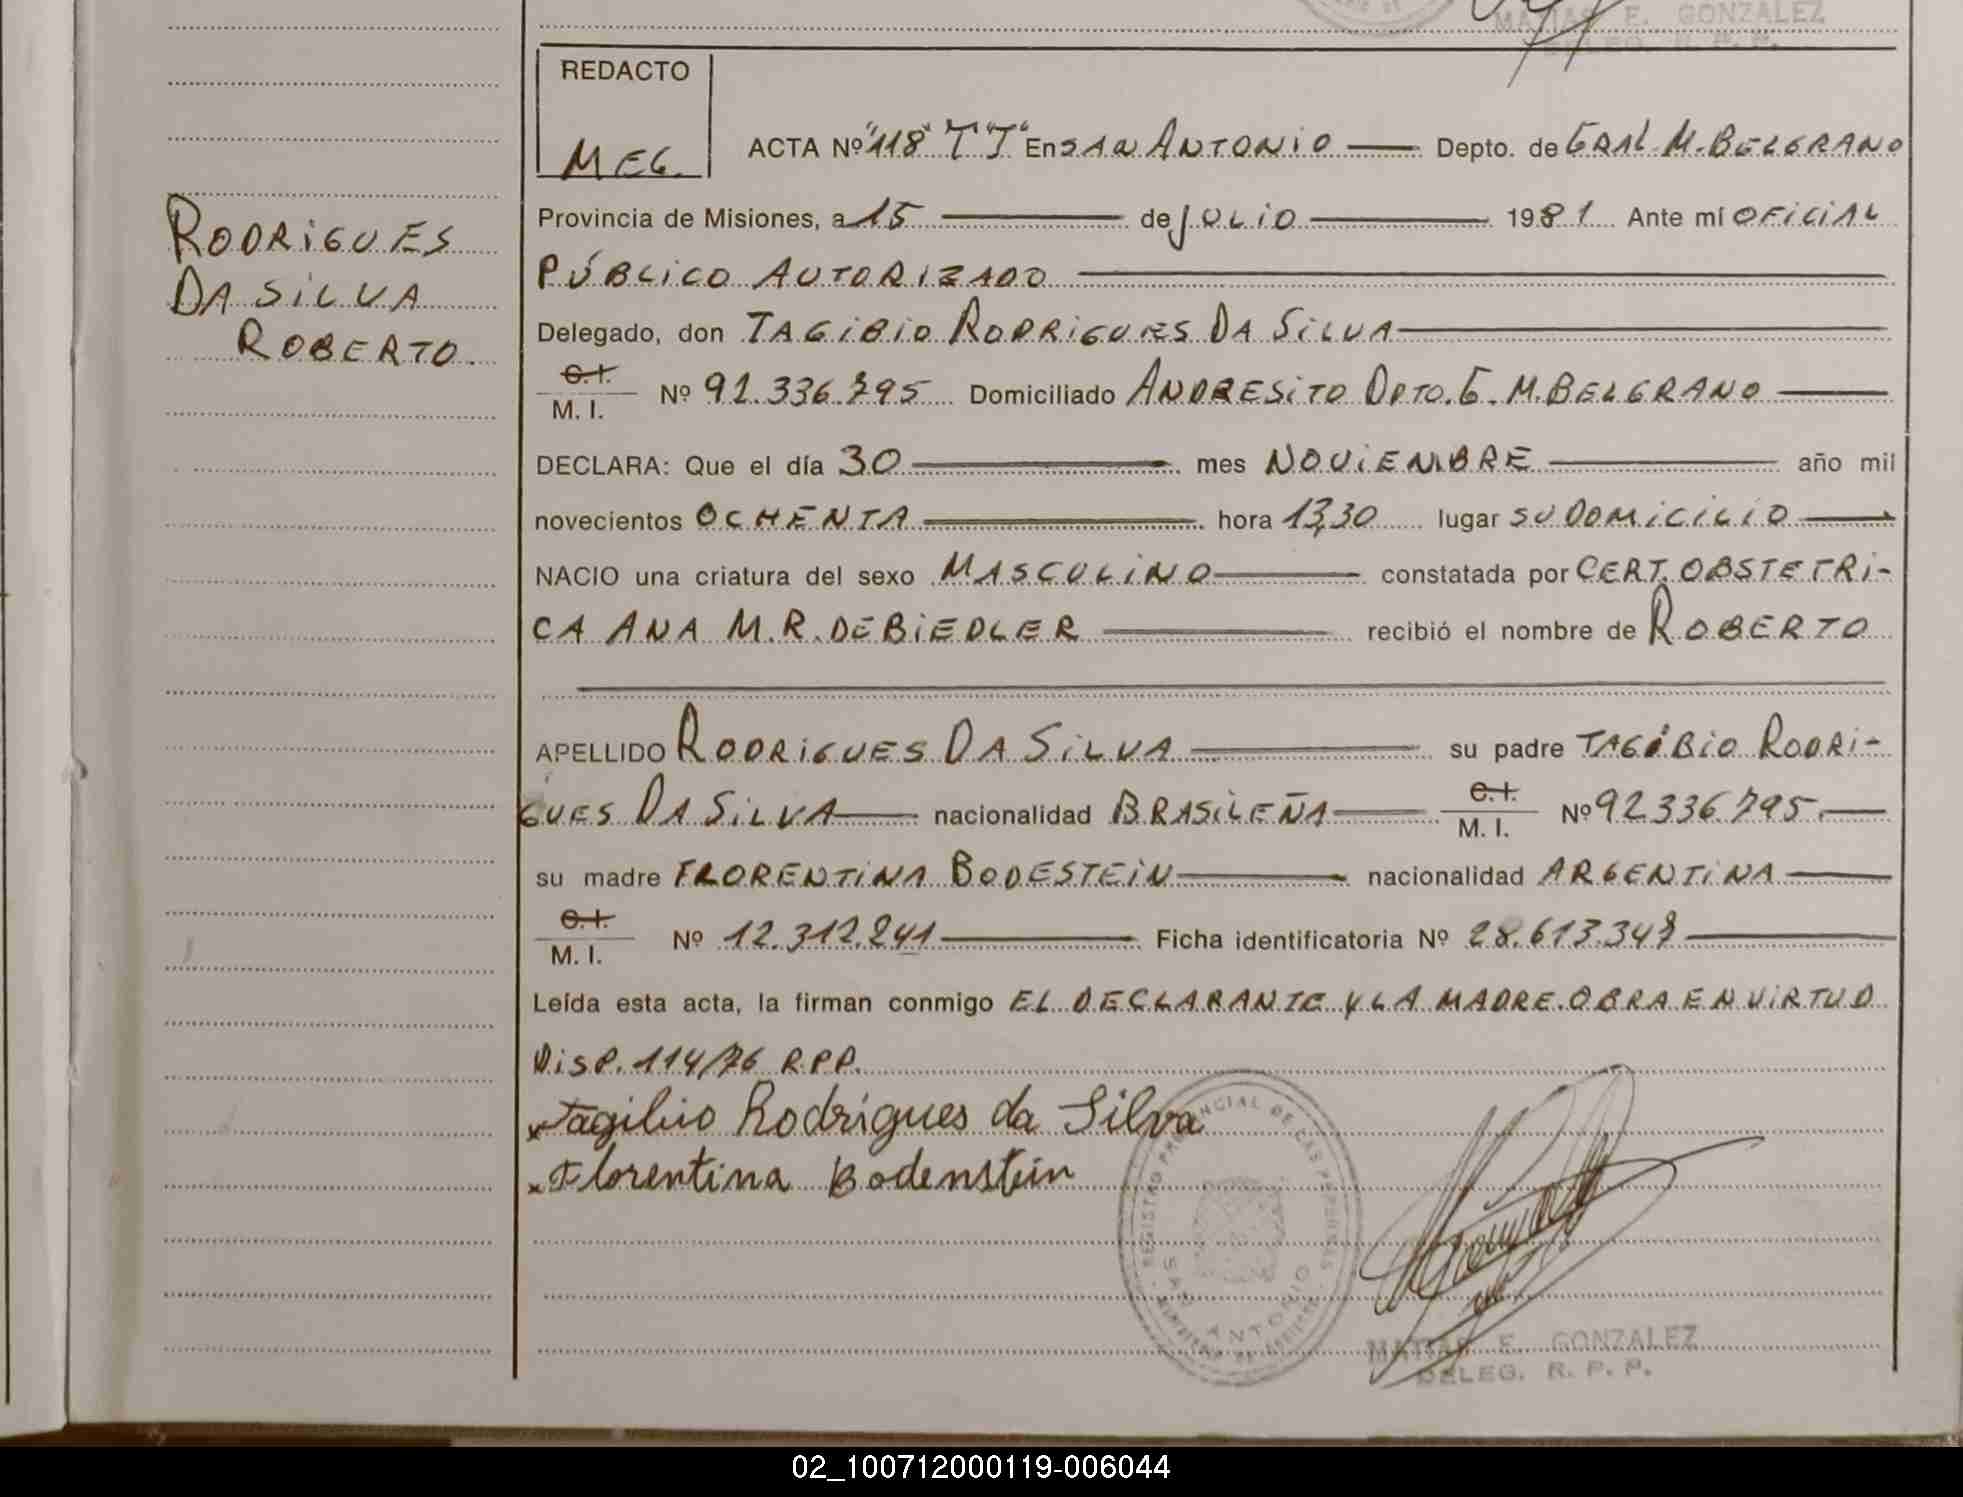 MATIAS E. GONZALEZ
DELEG. R. P. P.
REDACTO
MEG.
ACTA Nº "118" "T" "T" En SAN ANTONIO Depto. de GRAL M. BELGRANO
Provincia de Misiones, a 15 de JULIO 1981 Ante mí OFICIAL
PÚBLICO AUTORIZADO
Delegado, don TAGIBIO RODRIGUES DA SILVA
C.I.
M. I. Nº 92.336.795 Domiciliado ANDRESITO DPTO. G. M. BELGRANO
DECLARA: Que el día 30 mes NOVIEMBRE año mil
novecientos OCHENTA hora 13,30 lugar SU DOMICILIO
NACIO una criatura del sexo MASCULINO constatada por CERT. OBSTETRI-
CA ANA M. R. DE BIEDLER recibió el nombre de ROBERTO
APELLIDO RODRIGUES DA SILVA su padre TAGIBIO RODRI-
GUES DA SILVA nacionalidad BRASILEÑA C.I. M. I. Nº 92.336.795.
su madre FLORENTINA BODESTEIN nacionalidad ARGENTINA
C.I.
M. I. Nº 12.312.241 Ficha identificatoria Nº 28.613.347
Leída esta acta, la firman conmigo EL DECLARANTE Y LA MADRE. OBRA EN VIRTUD
DISP. 114/76 R.P.P.
x Tagibio Rodrigues da Silva
x Florentina Bodenstein
REGISTRO PROVINCIAL DE LAS PERSONAS
SAN ANTONIO
MATIAS E. GONZALEZ
DELEG. R. P. P.
RODRIGUES
DA SILVA
ROBERTO.
02_100712000119-006044